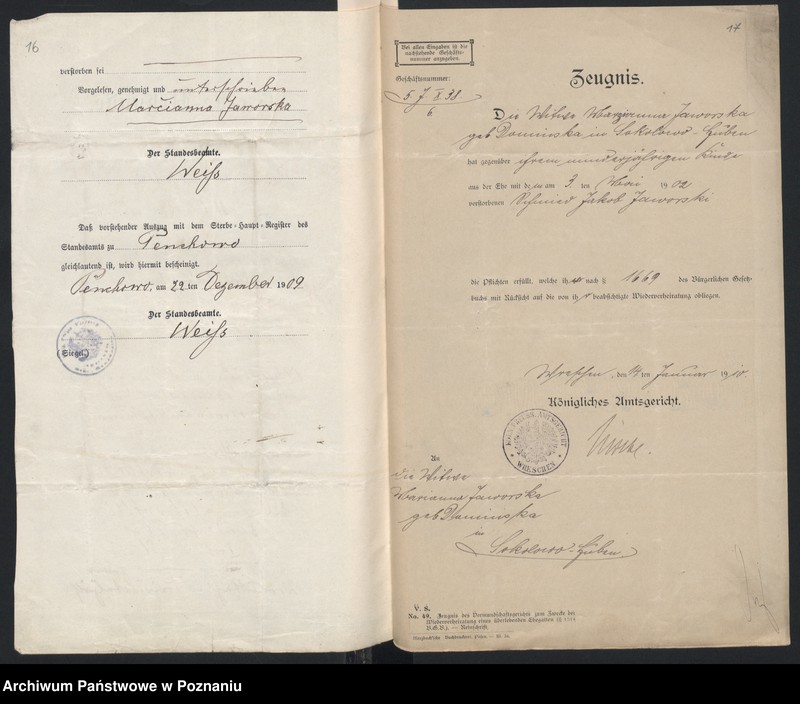 16
verstorben sei
Vorgelesen, genehmigt und unterschrieben
Marcianna Jaworska
Der Standesbeamte.
Weiß
Daß vorstehender Auszug mit dem Sterbe-Haupt-Register des
Standesamts zu Penchowo
gleichlautend ist, wird hiermit bescheinigt.
Penchowo, am 22 ten Dezember 1909
Der Standesbeamte.
Weiß
(Siegel.)
17
Bei allen Eingaben ist die
nachstehende Geschäfts-
nummer anzugeben.
Geschäftsnummer:
5 J X 38
6
Zeugnis.
Die Witwe Marianna Jaworska
geb Dominska in Sokolowo-Güben
hat gegenüber ihrem minderjährigen Kinde
aus der Ehe mit de am 3. ten Mai 1902
verstorbenen Schmied Jakob Jaworski
die Pflichten erfüllt, welche ihr nach § 1669 des Bürgerlichen Gesetz-
buchs mit Rücksicht auf die von ihr beabsichtigte Wiederverheiratung obliegen.
Wreschen, den 14 ten Januar 1910.
Königliches Amtsgericht.
KÖNIGL. PREUSS. AMTSGERICHT
* WRESCHEN *
An
die Witwe
Marianna Jaworska
geb Dominska
in
Sokolowo-Güben
V. S.
No. 49. Zeugnis des Vormundschaftsgerichts zum Zwecke der
Wiederverheiratung eines überlebenden Ehegatten (§ 1314
B.G.B.). — Reinschrift.
Archiwum Państwowe w Poznaniu